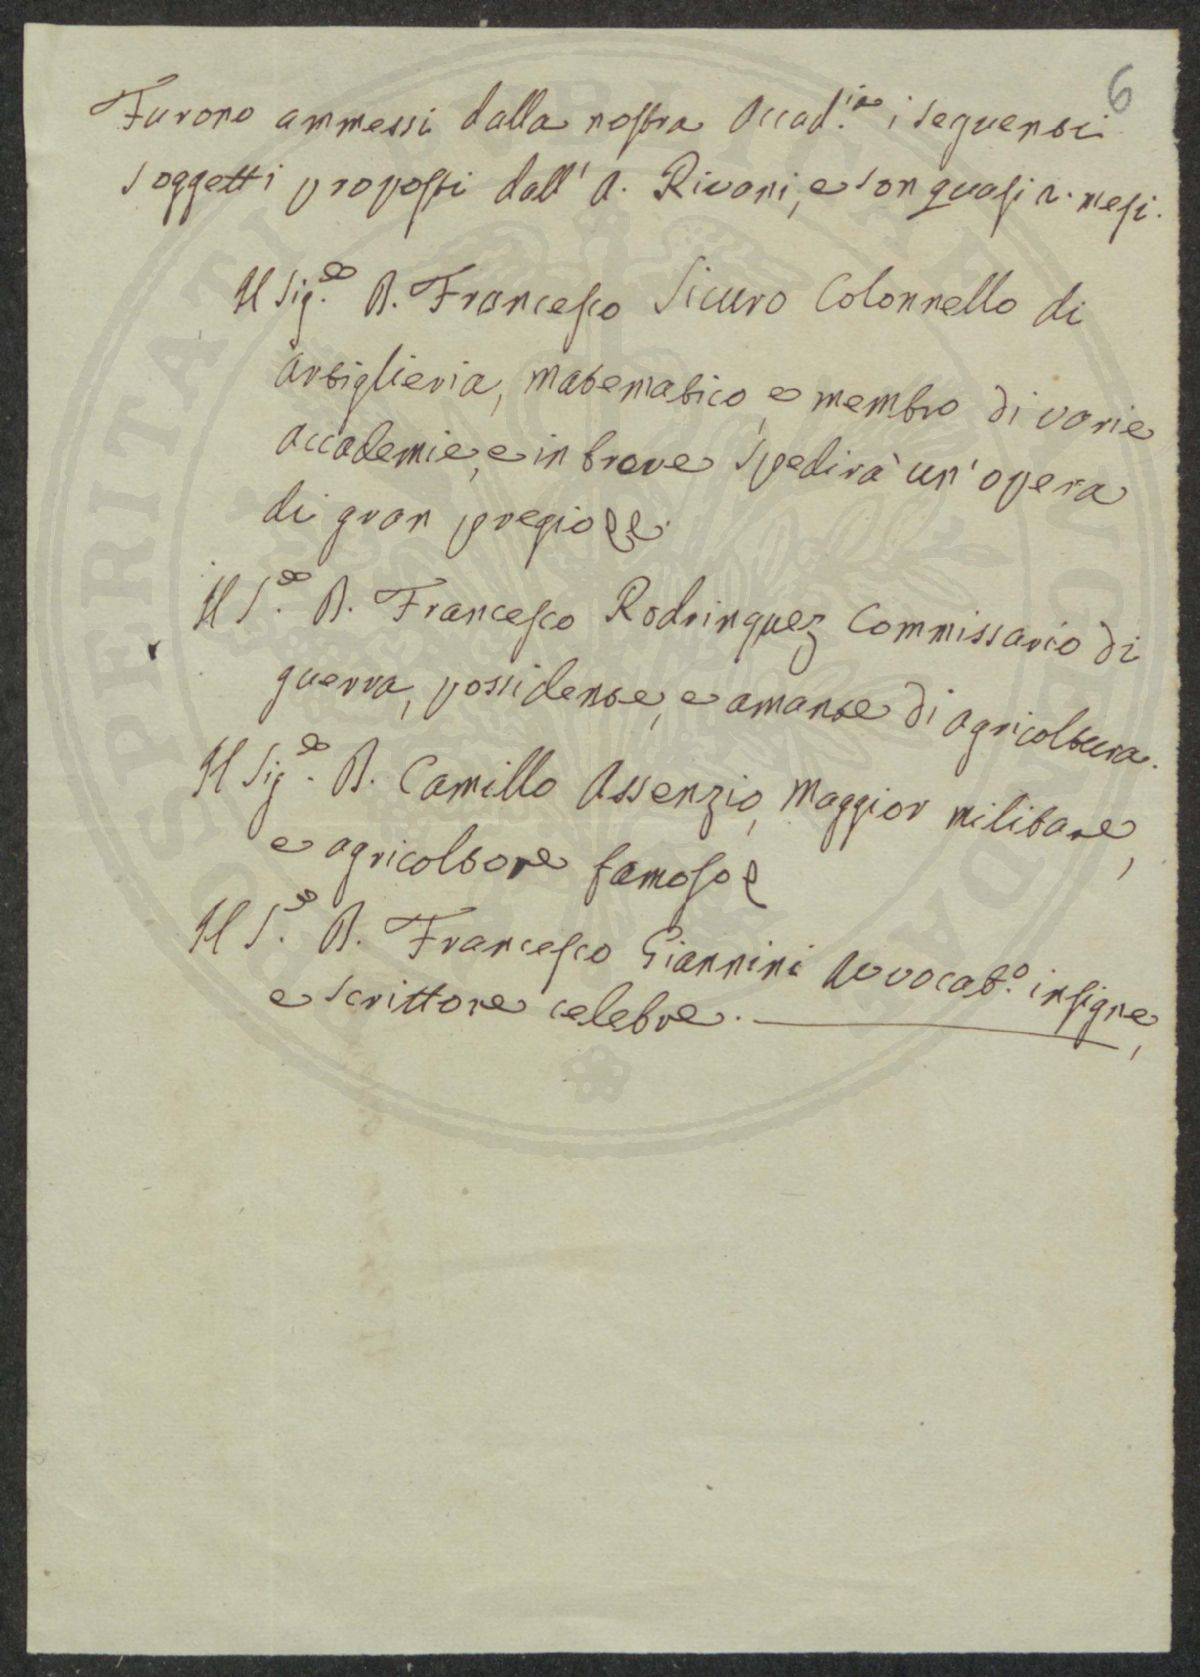 6
Furono ammessi dalla nostra Accad.ia i seguenti
soggetti proposti dall' A. Rivani, e son quasi 2. mesi.
Il Sig.e D. Francesco Sicuro Colonnello di
artiglieria, matematico, e membro di varie
accademie, e in breve spedirà un' opera
di gran pregio
Il S.e D. Francesco Rodrinquez Commissario di
guerra, possidente, e amante di agricoltura.
Il Sig.e D. Camillo Assenzio, Maggior militare,
e agricoltore famoso
Il S.e D. Francesco Giannini Avvocat.o insigne,
e scrittore celebre.